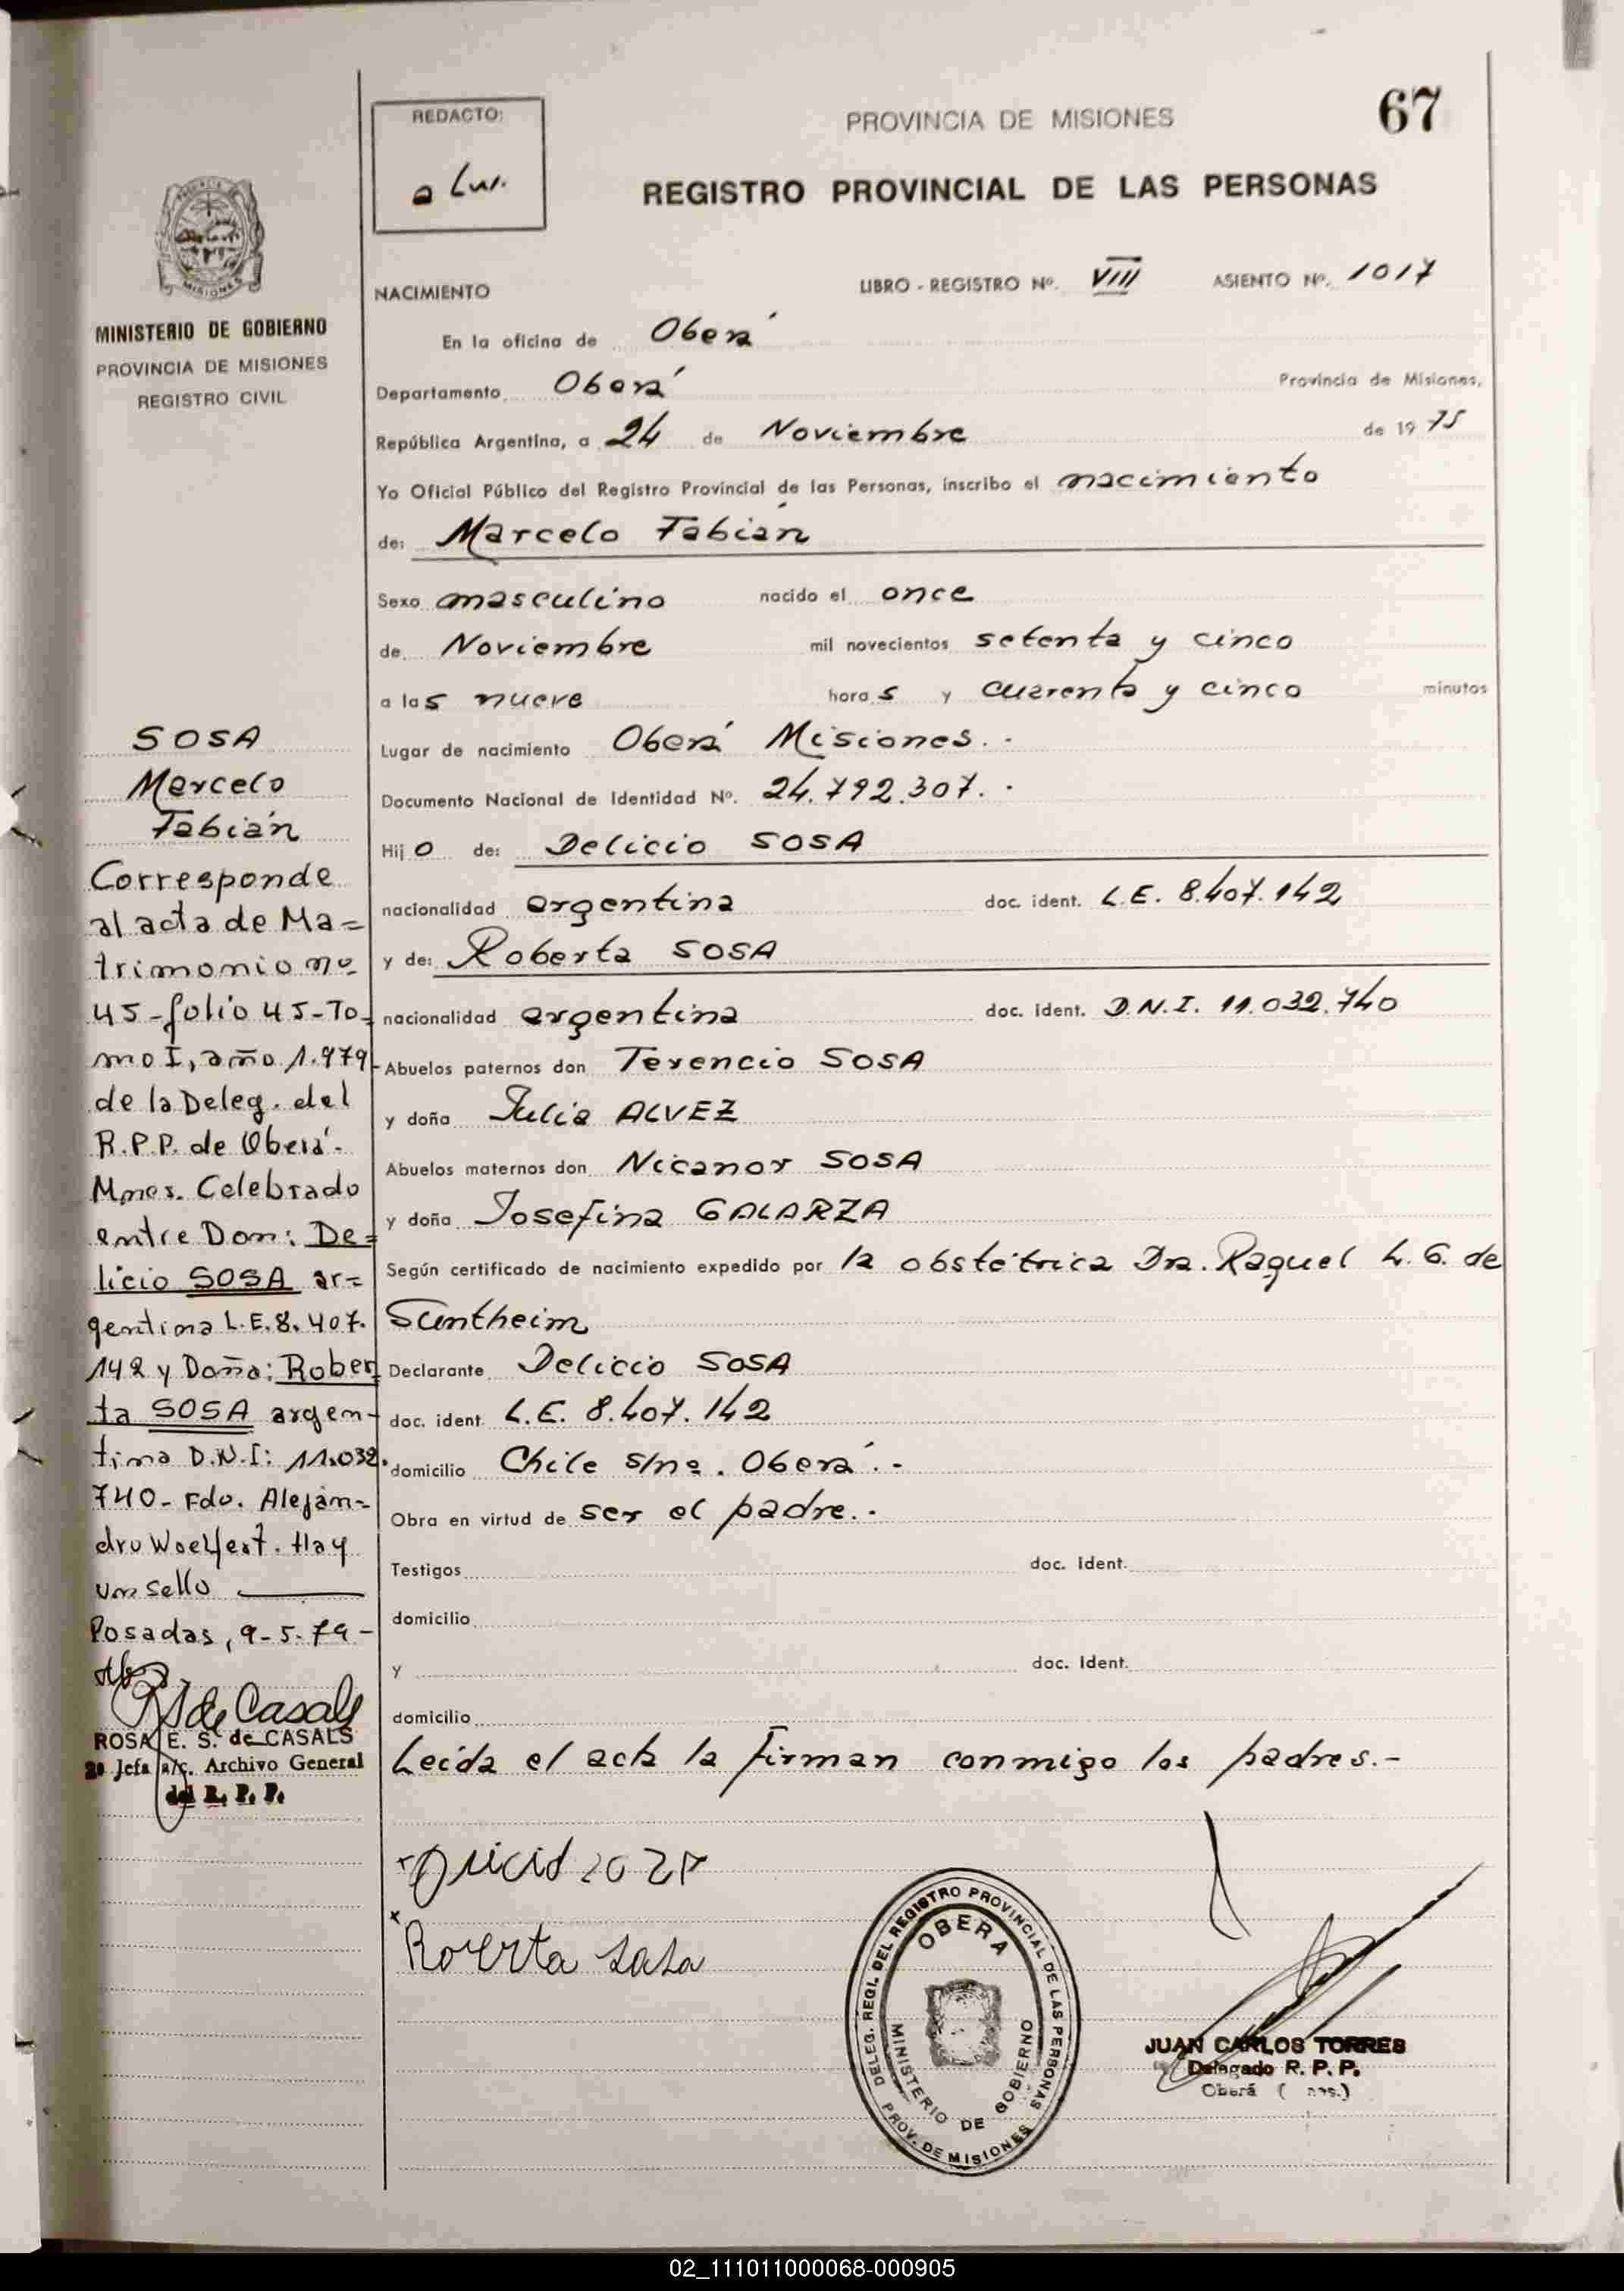 67
REDACTO:
PROVINCIA DE MISIONES
REGISTRO PROVINCIAL DE LAS PERSONAS
NACIMIENTO LIBRO - REGISTRO Nº. VIII ASIENTO Nº. 1017
En la oficina de Oberá
Departamento Oberá Provincia de Misiones,
República Argentina, a 24 de Noviembre de 19 75
Yo Oficial Público del Registro Provincial de las Personas, inscribo el nacimiento
de: Marcelo Fabián
Sexo masculino nacido el once
de Noviembre mil novecientos setenta y cinco
a las nueve horas y cuarenta y cinco minutos
Lugar de nacimiento Oberá Misiones.-
Documento Nacional de Identidad Nº. 24.792.307.-
Hijo de: Delicio SOSA
nacionalidad argentina doc. ident. L.E. 8.407.142
y de: Roberta SOSA
nacionalidad argentina doc. ident. D.N.I. 11.032.740
Abuelos paternos don Terencio SOSA
y doña Julia ALVEZ
Abuelos maternos don Nicanor SOSA
y doña Josefina GALARZA
Según certificado de nacimiento expedido por la obstétrica Dra. Raquel L. G. de
Suntheim
Declarante Delicio SOSA
doc. ident. L.E. 8.407.142
domicilio Chile s/nº. Oberá.-
Obra en virtud de ser el padre.-
Testigos doc. ident.
domicilio
y doc. ident.
domicilio
Leída el acta la firman conmigo los padres.-
Roerta sosa
DELEG. REGI. DEL REGISTRO PROVINCIAL DE LAS PERSONAS
OBERA
MINISTERIO DE GOBIERNO
PROV. DE MISIONES
JUAN CARLOS TORRES
Delegado R. P. P.
Oberá
MISIONES
MINISTERIO DE GOBIERNO
PROVINCIA DE MISIONES
REGISTRO CIVIL
SOSA
Marcelo
Fabián
Corresponde
al acta de Ma=
trimonio nº
45-folio 45-To-
mo I, año 1.979-
de la Deleg. del
R.P.P. de Oberá-
Mnes. Celebrado
entre Don: De=
licio SOSA ar=
gentina L.E.8.407.
142 y Doña: Rober=
ta SOSA argen-
tina D.N.I: 11.032.
740- Fdo. Alejan-
dro Woelfert. Hay
un sello
Posadas, 9-5-79-
RS de Casals
ROSA E. S. de CASALS
2º Jefa a/c. Archivo General
del R. P. P.
02_111011000068-000905